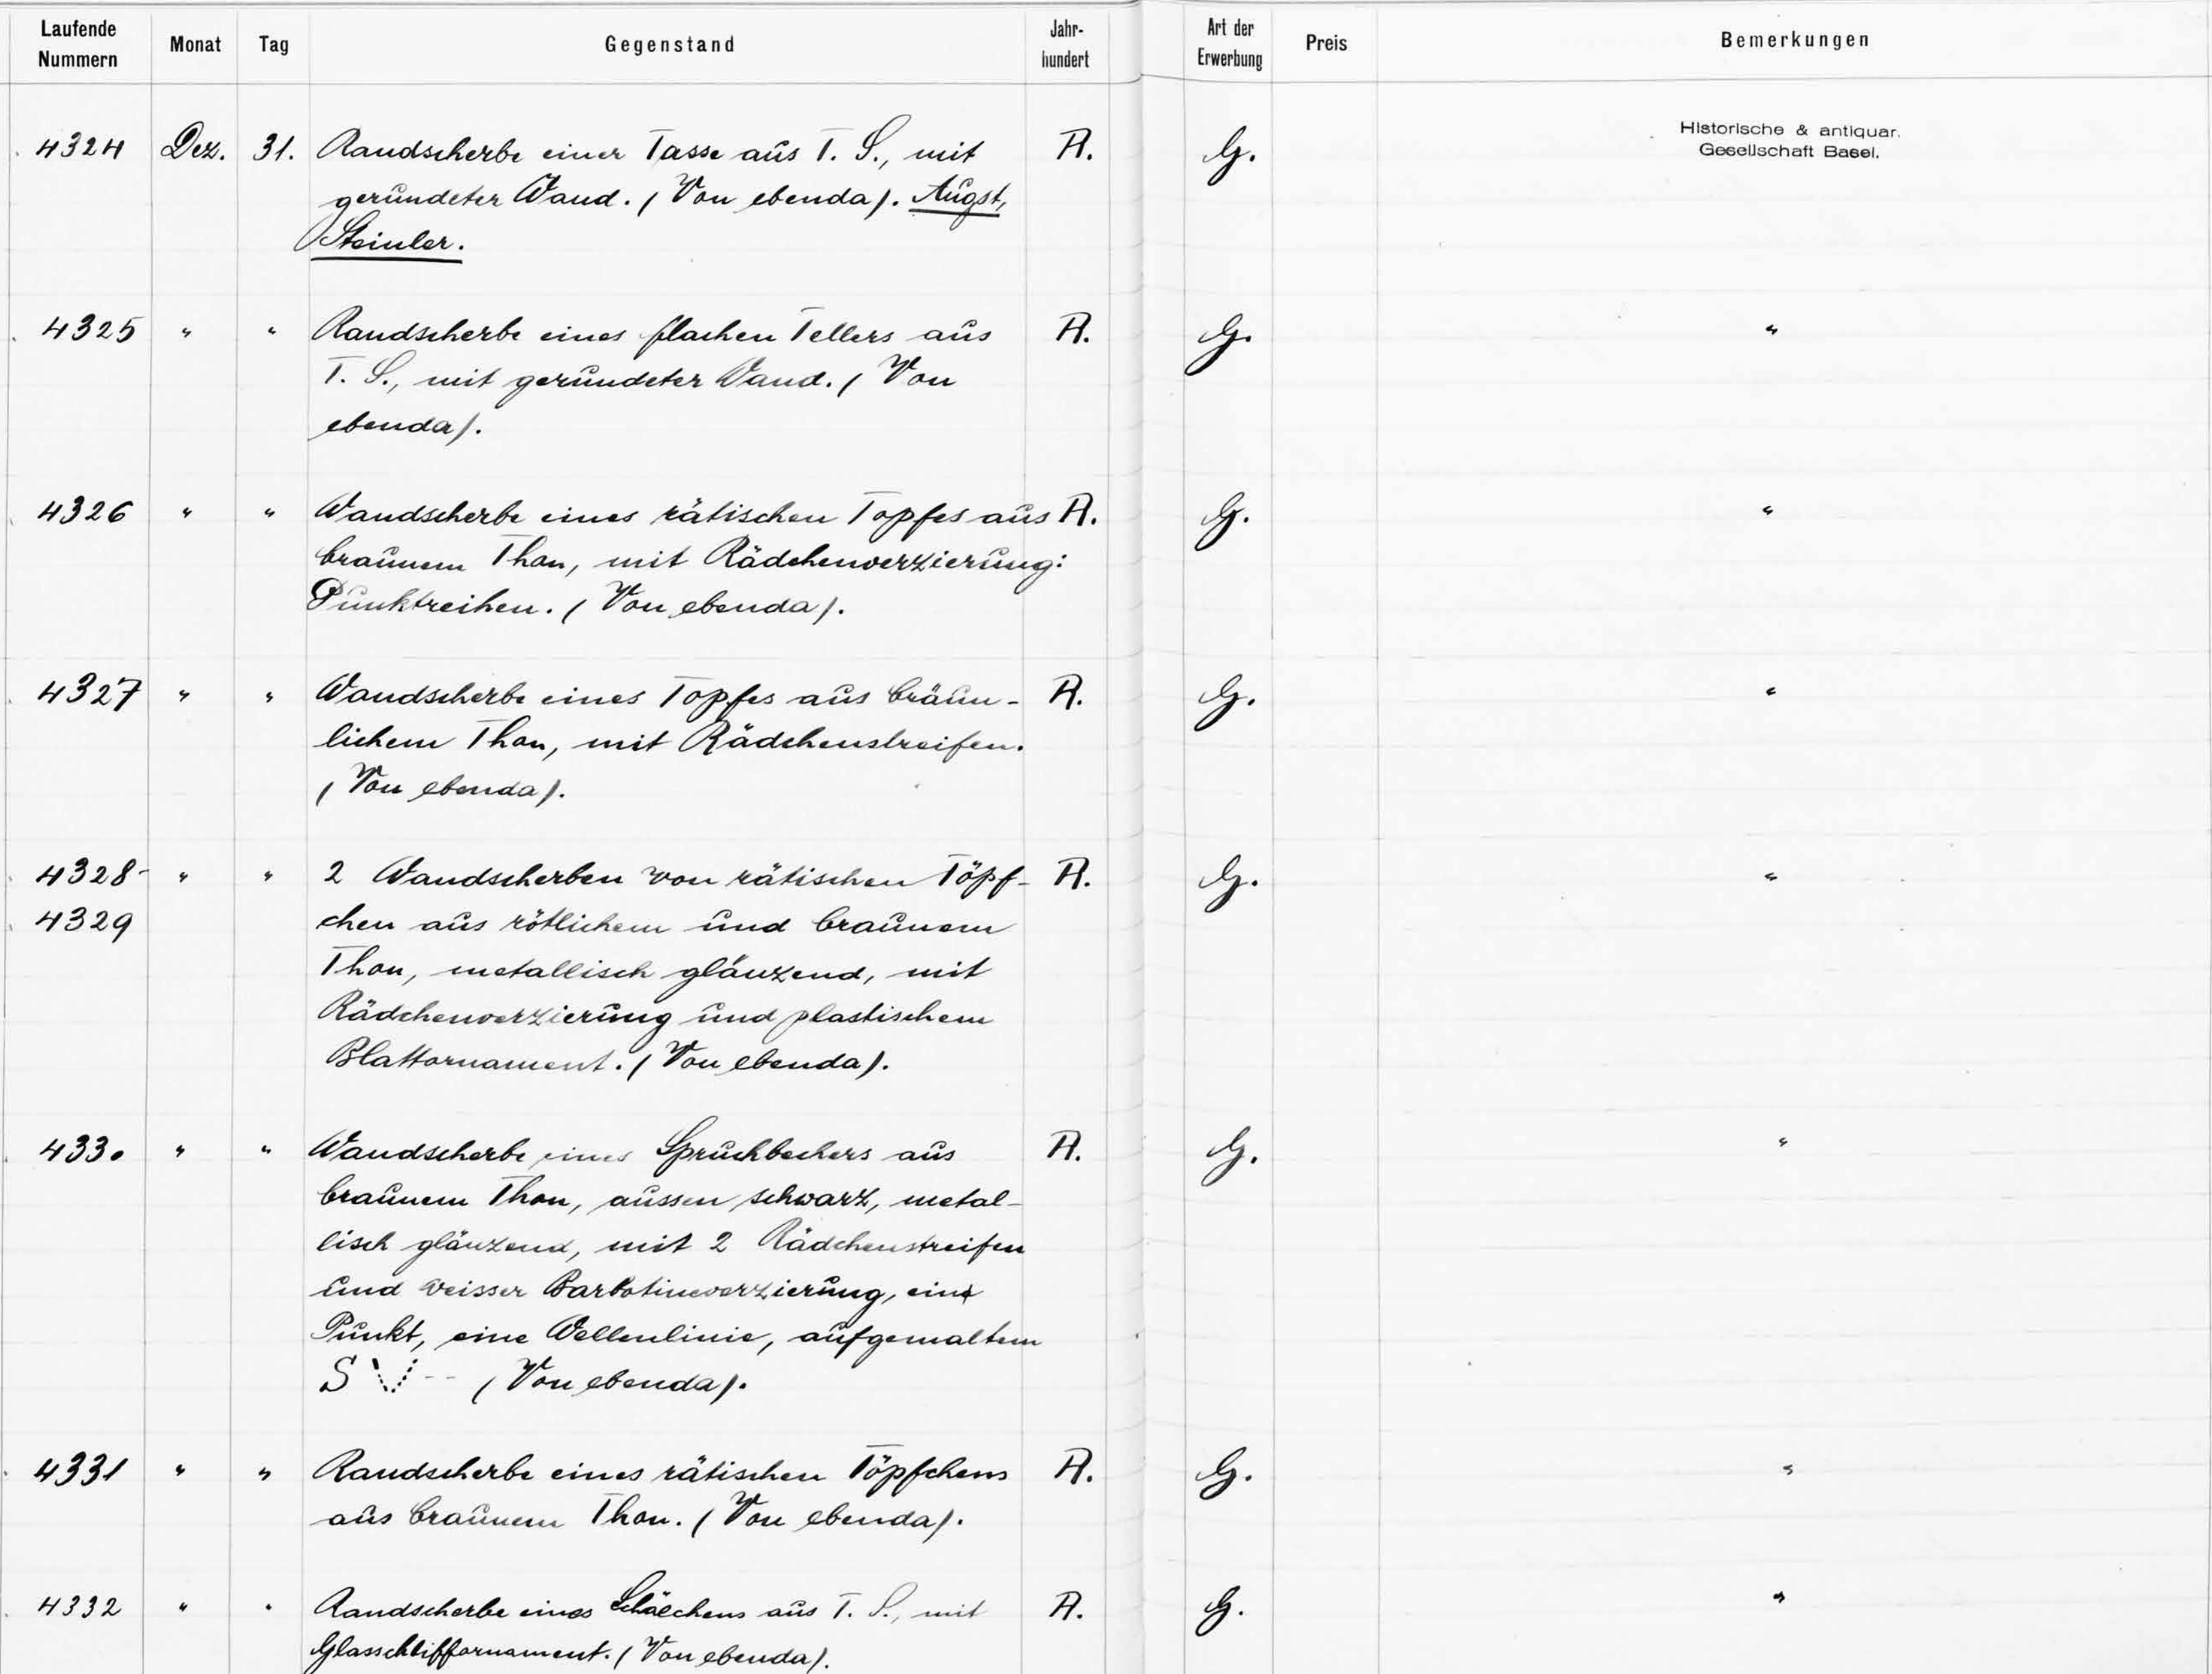 Laufende Nummern Monat Tag Gegenstand Jahr-hundert Art der Erwerbung Preis Bemerkungen
4324 Dez. 31. Randscherbe einer Tasse aus T. S., mit R. G. Historische & antiquar.
gerundeter Wand. (Von ebenda). Augst, Gesellschaft Basel.
Steinler.
4325 " " Randscherbe eines flachen Tellers aus R. G. "
T. S., mit gerundeter Wand. (Von
ebenda).
4326 " " Wandscherbe eines rätischen Topfes aus R. G. "
braunem Thon, mit Rädchenverzierung:
Punktreihen. (Von ebenda).
4327 " " Wandscherbe eines Topfes aus bräun- R. G. "
lichem Thon, mit Rädchenstreifen.
(Von ebenda).
4328- " " 2 Wandscherben von rätischen Töpf- R. G. "
4329 chen aus rötlichem und braunem
Thon, metallisch glänzend, mit
Rädchenverzierung und plastischem
Blattornament. (Von ebenda).
4330 " " Wandscherbe eines Spruchbechers aus R. G. "
braunem Thon, aussen schwarz, metal-
lisch glänzend, mit 2 Rädchenstreifen
und weisser Barbotineverzierung, ein
Punkt, eine Wellenlinie, aufgemaltem
S V -- (Von ebenda).
4331 " " Randscherbe eines rätischen Töpfchens R. G. "
aus braunem Thon. (Von ebenda).
4332 " " Randscherbe eines Schälchens aus T. S., mit R. G. "
Glasschliffornament. (Von ebenda).